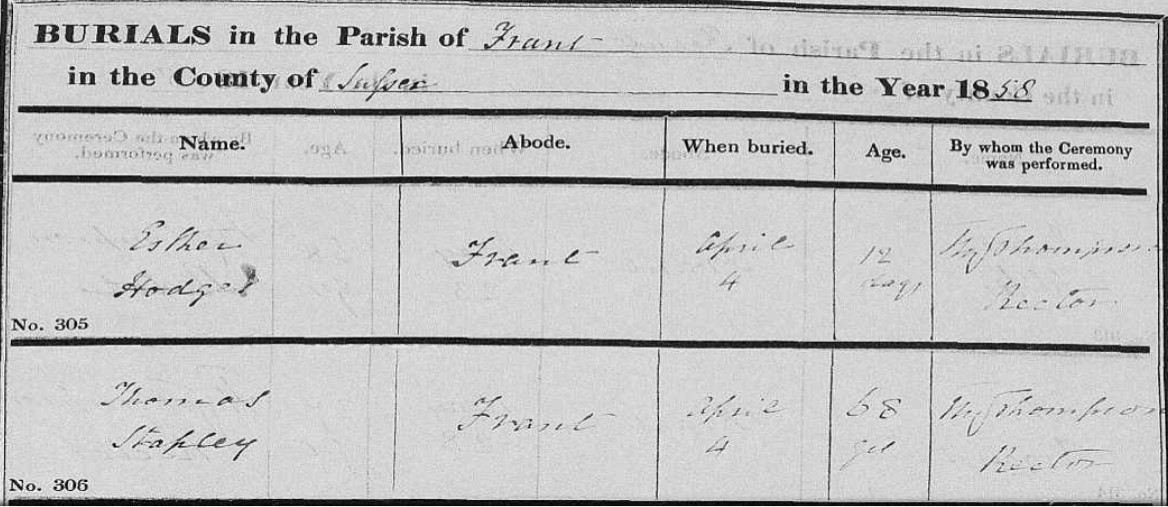 BURIALS in the Parish of Frant
in the County of Sussex in the Year 1858
Name. Abode. When buried. Age. By whom the Ceremony was performed.
Esther Frant April 12
Hodges 4 days Rector
No. 305
Thomas Frant April 68
Stapley 4 Rector
No. 306